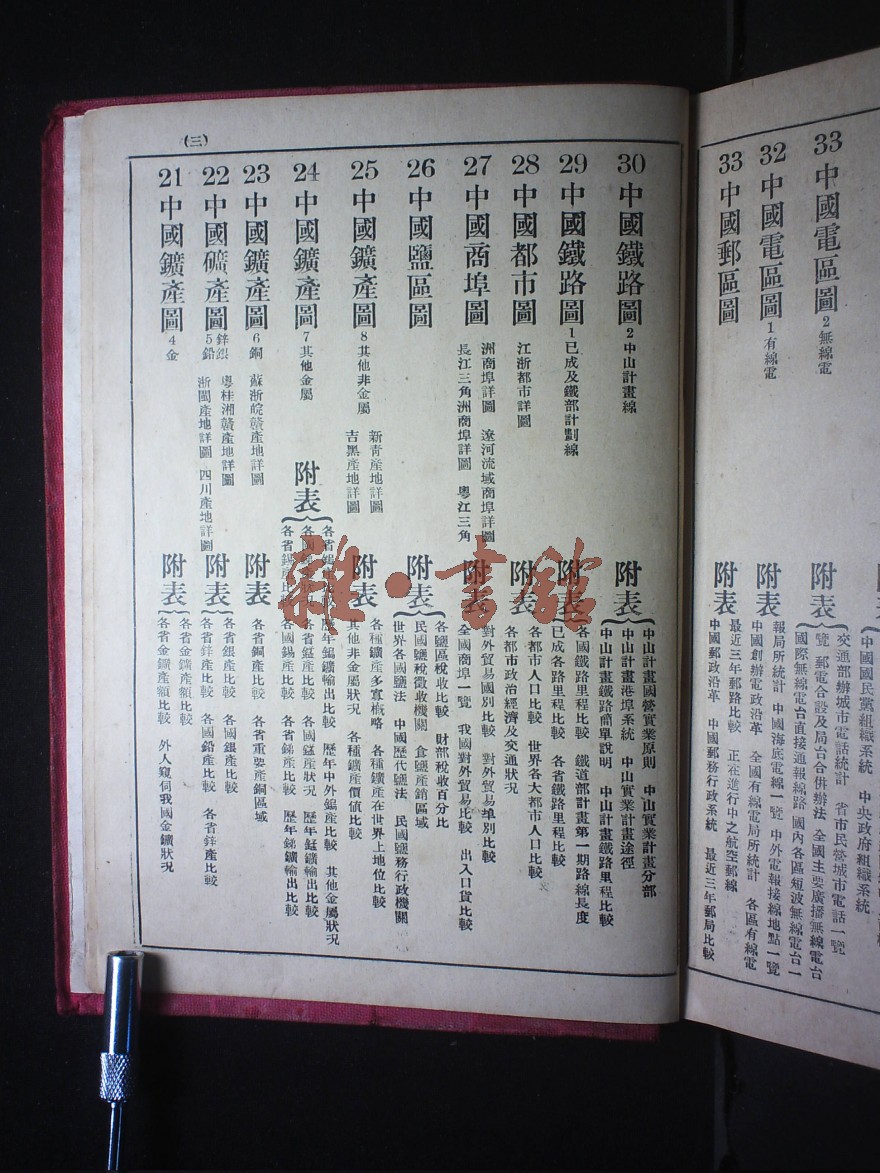 (三)
21中國鑛產圖 4金
附表
各省金鑛產額比較 外人窺伺我國金鑛狀況
各省金鑛產額比較
22中國礦產圖 5鉛鋅銀
浙閩產地詳圖 四川產地詳圖
粵桂湘贛產地詳圖
附表
各省鋅產比較 各國鉛產比較 各省鋅產比較
各省銀產比較 各國銀產比較
23中國鑛產圖 6銅 蘇浙皖贛產地詳圖
附表
各省銅產比較 各省重要產銅區域
24中國鑛產圖 7其他金屬
附表
各省錫產比較 各國錫產比較 各省銻產比較 歷年銻鑛輸出比較
各省錳產比較 各國錳產狀況 歷年錳鑛輸出比較
歷年鎢鑛輸出比較 歷年中外鎢產比較 其他金屬狀況
25中國鑛產圖 8其他非金屬
吉黑產地詳圖
新青產地詳圖
附表
其他非金屬狀況 各種鑛產價值比較
各種鑛產多寡概略 各種鑛產在世界上地位比較
26中國鹽區圖
附表
世界各國鹽法 中國歷代鹽法 民國鹽務行政機關
民國鹽稅徵收機關 食鹽產銷區域
各鹽區稅收比較 財部稅收百分比
27中國商埠圖
長江三角洲商埠詳圖 粵江三角
洲商埠詳圖 遼河流域商埠詳圖
附表
全國商埠一覽 我國對外貿易比較 出入口貨比較
對外貿易國別比較 對外貿易埠別比較
28中國都市圖 江浙都市詳圖
附表
各都市政治經濟及交通狀況
各都市人口比較 世界各大都市人口比較
29中國鐵路圖 1已成及鐵部計劃線
附表
已成各路里程比較 各省鐵路里程比較
各國鐵路里程比較 鐵道部計畫第一期路線長度
30中國鐵路圖 2中山計畫線
附表
中山計畫鐵路簡單說明 中山計畫鐵路里程比較
中山計畫港埠系統 中山實業計畫途徑
中山計畫國營實業原則 中山實業計畫分部
33中國郵區圖
附表
中國郵政沿革 中國郵務行政系統 最近三年郵局比較
最近三年郵路比較 正在進行中之航空郵線
32中國電區圖 1有線電
附表
中國創辦電政沿革 全國有線電局所統計 各區有線電
報局所統計 中國海底電線一覽 中外電報接線地點一覽
33中國電區圖 2無線電
附表
國際無線電台直接通報線路 國內各區短波無線電台一
覽 郵電合設及局台合併辦法 全國主要廣播無線電台
交通部辦城市電話統計 省市民營城市電話一覽
中國國民黨組織系統 中央政府組織系統
雜·書館